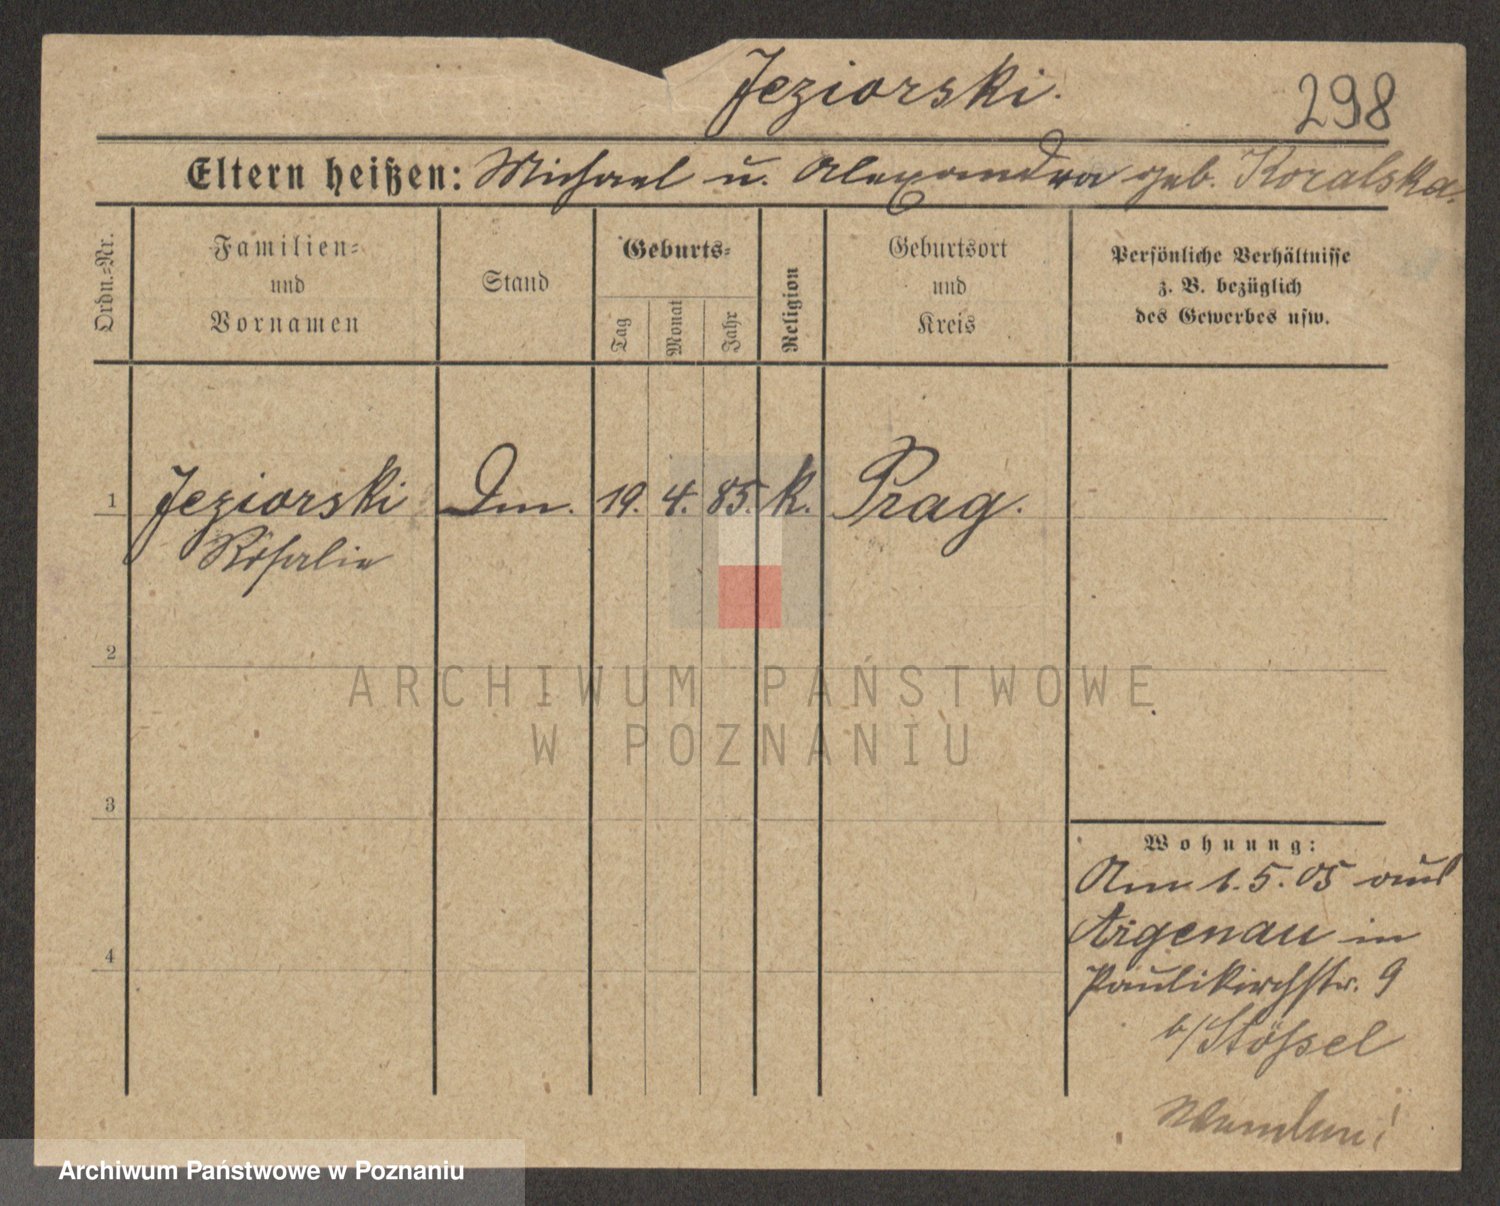 Jeziorski.
298
Eltern heißen: Michael u. Alexandra geb. Koralska.
Ordn.=Nr.
Familien=
und
Vornamen
Stand
Geburts=
Tag
Monat
Jahr
Religion
Geburtsort
und
Kreis
Persönliche Verhältnisse
z. B. bezüglich
des Gewerbes usw.
1
Jeziorski
Rosalie
Dm.
19.
4.
85.
k.
Prag.
2
ARCHIWUM PAŃSTWOWE
W POZNANIU
3
4
Wohnung:
1.5.05 aus
Argenau in
Paulikirchstr. 9
b/Stössel
Archiwum Państwowe w Poznaniu